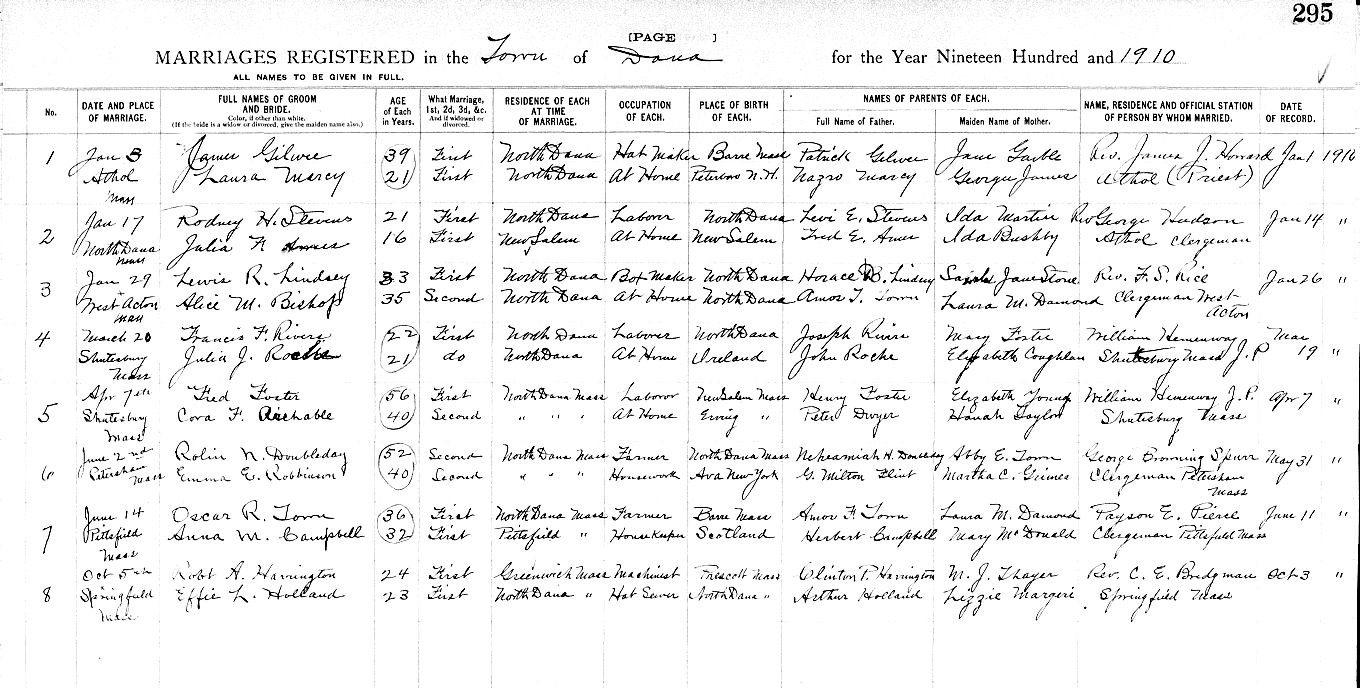 295
[PAGE ]
MARRIAGES REGISTERED in the Town of Dana for the Year Nineteen Hundred and 1910
ALL NAMES TO BE GIVEN IN FULL.
No. DATE AND PLACE OF MARRIAGE. FULL NAMES OF GROOM AND BRIDE. Color, if other than white. (If the bride is a widow or divorced, give the maiden name also.) AGE of Each in Years. What Marriage, 1st, 2d, 3d, &c. And if widowed or divorced. RESIDENCE OF EACH AT TIME OF MARRIAGE. OCCUPATION OF EACH. PLACE OF BIRTH OF EACH. NAMES OF PARENTS OF EACH. Full Name of Father. Maiden Name of Mother. NAME, RESIDENCE AND OFFICIAL STATION OF PERSON BY WHOM MARRIED. DATE OF RECORD.
1 Jan 3 James Gilwee 39 First North Dana Hat Maker Barre Mass Patrick Gilwee Jane Rev. James J. Howard Jan 1 1910
Athol Laura Marcy 21 First North Dana At Home Peterboro N.H. Nazro Marcy Georgie James Athol (Priest)
Mass
2 Jan 17 Rodney H. Stevens 21 First North Dana Laborer North Dana Levi E. Stevens Ida Martin Rev George Hudson Jan 14 "
North Dana Julia N Ames 16 First New Salem At Home New Salem Fred E. Ames Ida Bushby Athol Clergeman
Mass
3 Jan 29 Lewis R. Lindsey 33 First North Dana Box Maker North Dana Horace B. Lindsey Sarah Jane Stone Rev. F. S. Rice Jan 26 "
West Acton Alice M. Bishop 35 Second North Dana At Home North Dana Amos T. Town Laura M. Damond Clergeman West
Mass Acton
4 March 20 Francis F. Rivers 22 First North Dana Laborer North Dana Joseph Rivers Mary Foster William Hemenway Mar
Shutesbury Julia J. Roche 21 do North Dana At Home Ireland John Roche Elizabeth Coughlan Shutesbury Mass J. P 19 "
Mass
5 Apr 7th Fred Foster 56 First North Dana Mass Laboror New Salem Mass Henry Foster Elizabeth Young William Hemenway J.P. Apr 7 "
Shutesbury Cora F. 40 Second " " " At Home Erving " Peter Dwyer Hanah Taylor Shutesbury Mass
Mass
6 June 2nd Rolin N. Doubleday 52 Second North Dana Mass Farmer North Dana Mass Nehearniah H. Abby E. Town George Browning Spurr May 31 "
Petersham Mass Emma E. Robbinson 40 Second " " " Housework Ava New York G. Milton Flint Martha C. Grimes Clergeman Petersham
Mass
7 June 14 Oscar R. Town 36 First North Dana Mass Farmer Barre Mass Amos F. Town Laura M. Damond Payson E. Pierce June 11 "
Pittsfield Anna M. Campbell 32 First Pittsfield " House Keeper Scotland Herbert Campbell Mary McDonald Clergeman Pittsfield Mass
Mass
8 Oct 5th Robt A. Harrington 24 First Greenwich Mass Machinist Prescott Mass Clinton P. Harrington M. J. Thayer Rev. C. E. Bridgman Oct 3 "
Springfield Effie L. Holland 23 First North Dana " Hat Sewer North Dana " Arthur Holland Lizzie Margeri Springfield Mass
Mass